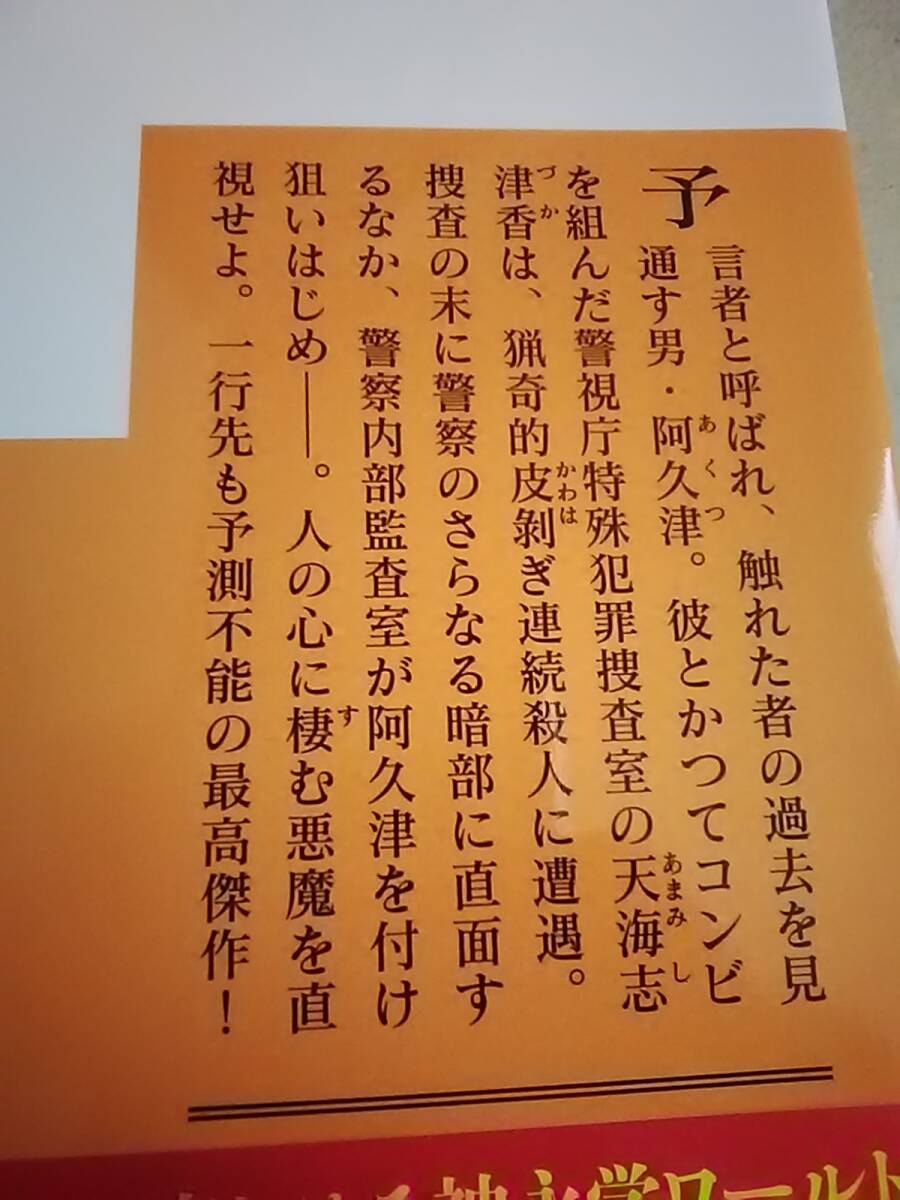 予言者と呼ばれ、触れた者の過去を見
通す男・阿久津。彼とかつてコンビ
を組んだ警視庁特殊犯罪捜査室の天海志
津香は、猟奇的皮剝ぎ連続殺人に遭遇。
捜査の末に警察のさらなる暗部に直面す
るなか、警察内部監査室が阿久津を付け
狙いはじめ――。人の心に棲む悪魔を直
視せよ。一行先も予測不能の最高傑作！
神永学ワールド